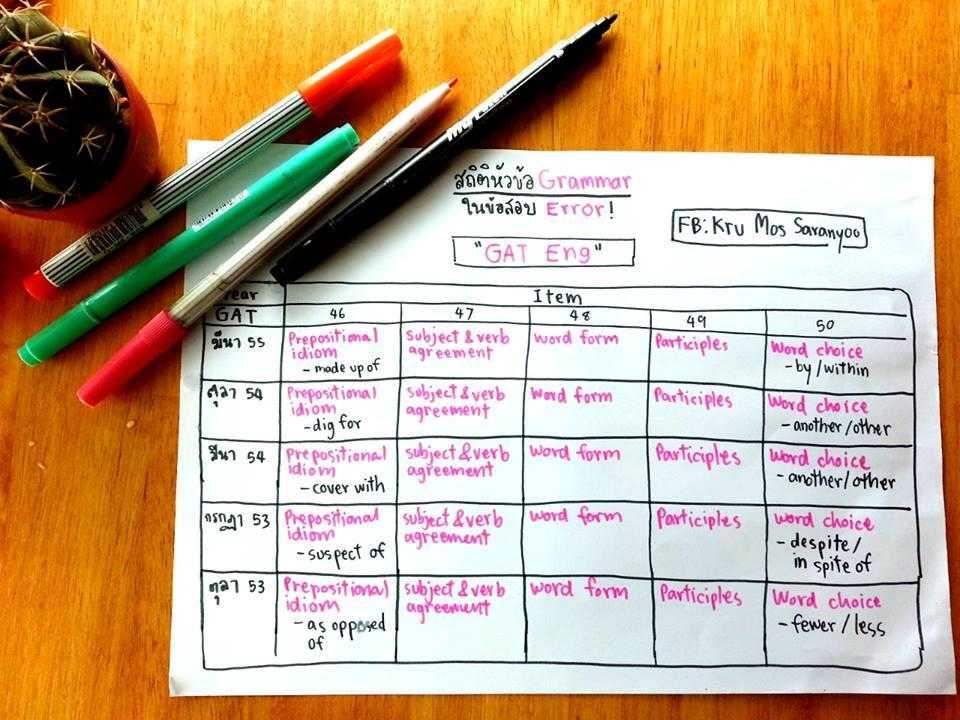 สถิติหัวข้อ Grammar
ในข้อสอบ Error!
"GAT Eng"
FB: Kru Mos Saranyoo
Year Item
GAT 46 47 48 49 50
มีนา 55 Prepositional subject & verb word form Participles Word choice
idiom agreement - by / within
- made up of
ตุลา 54 Prepositional subject & verb word form Participles Word choice
idiom agreement - another / other
- dig for
มีนา 54 Prepositional subject & verb word form Participles Word choice
idiom agreement - another / other
- cover with
กรกฎา 53 Prepositional subject & verb word form Participles word choice
idiom agreement - despite /
- suspect of in spite of
ตุลา 53 Prepositional subject & verb word form Participles Word choice
idiom agreement - fewer / less
- as opposed
of